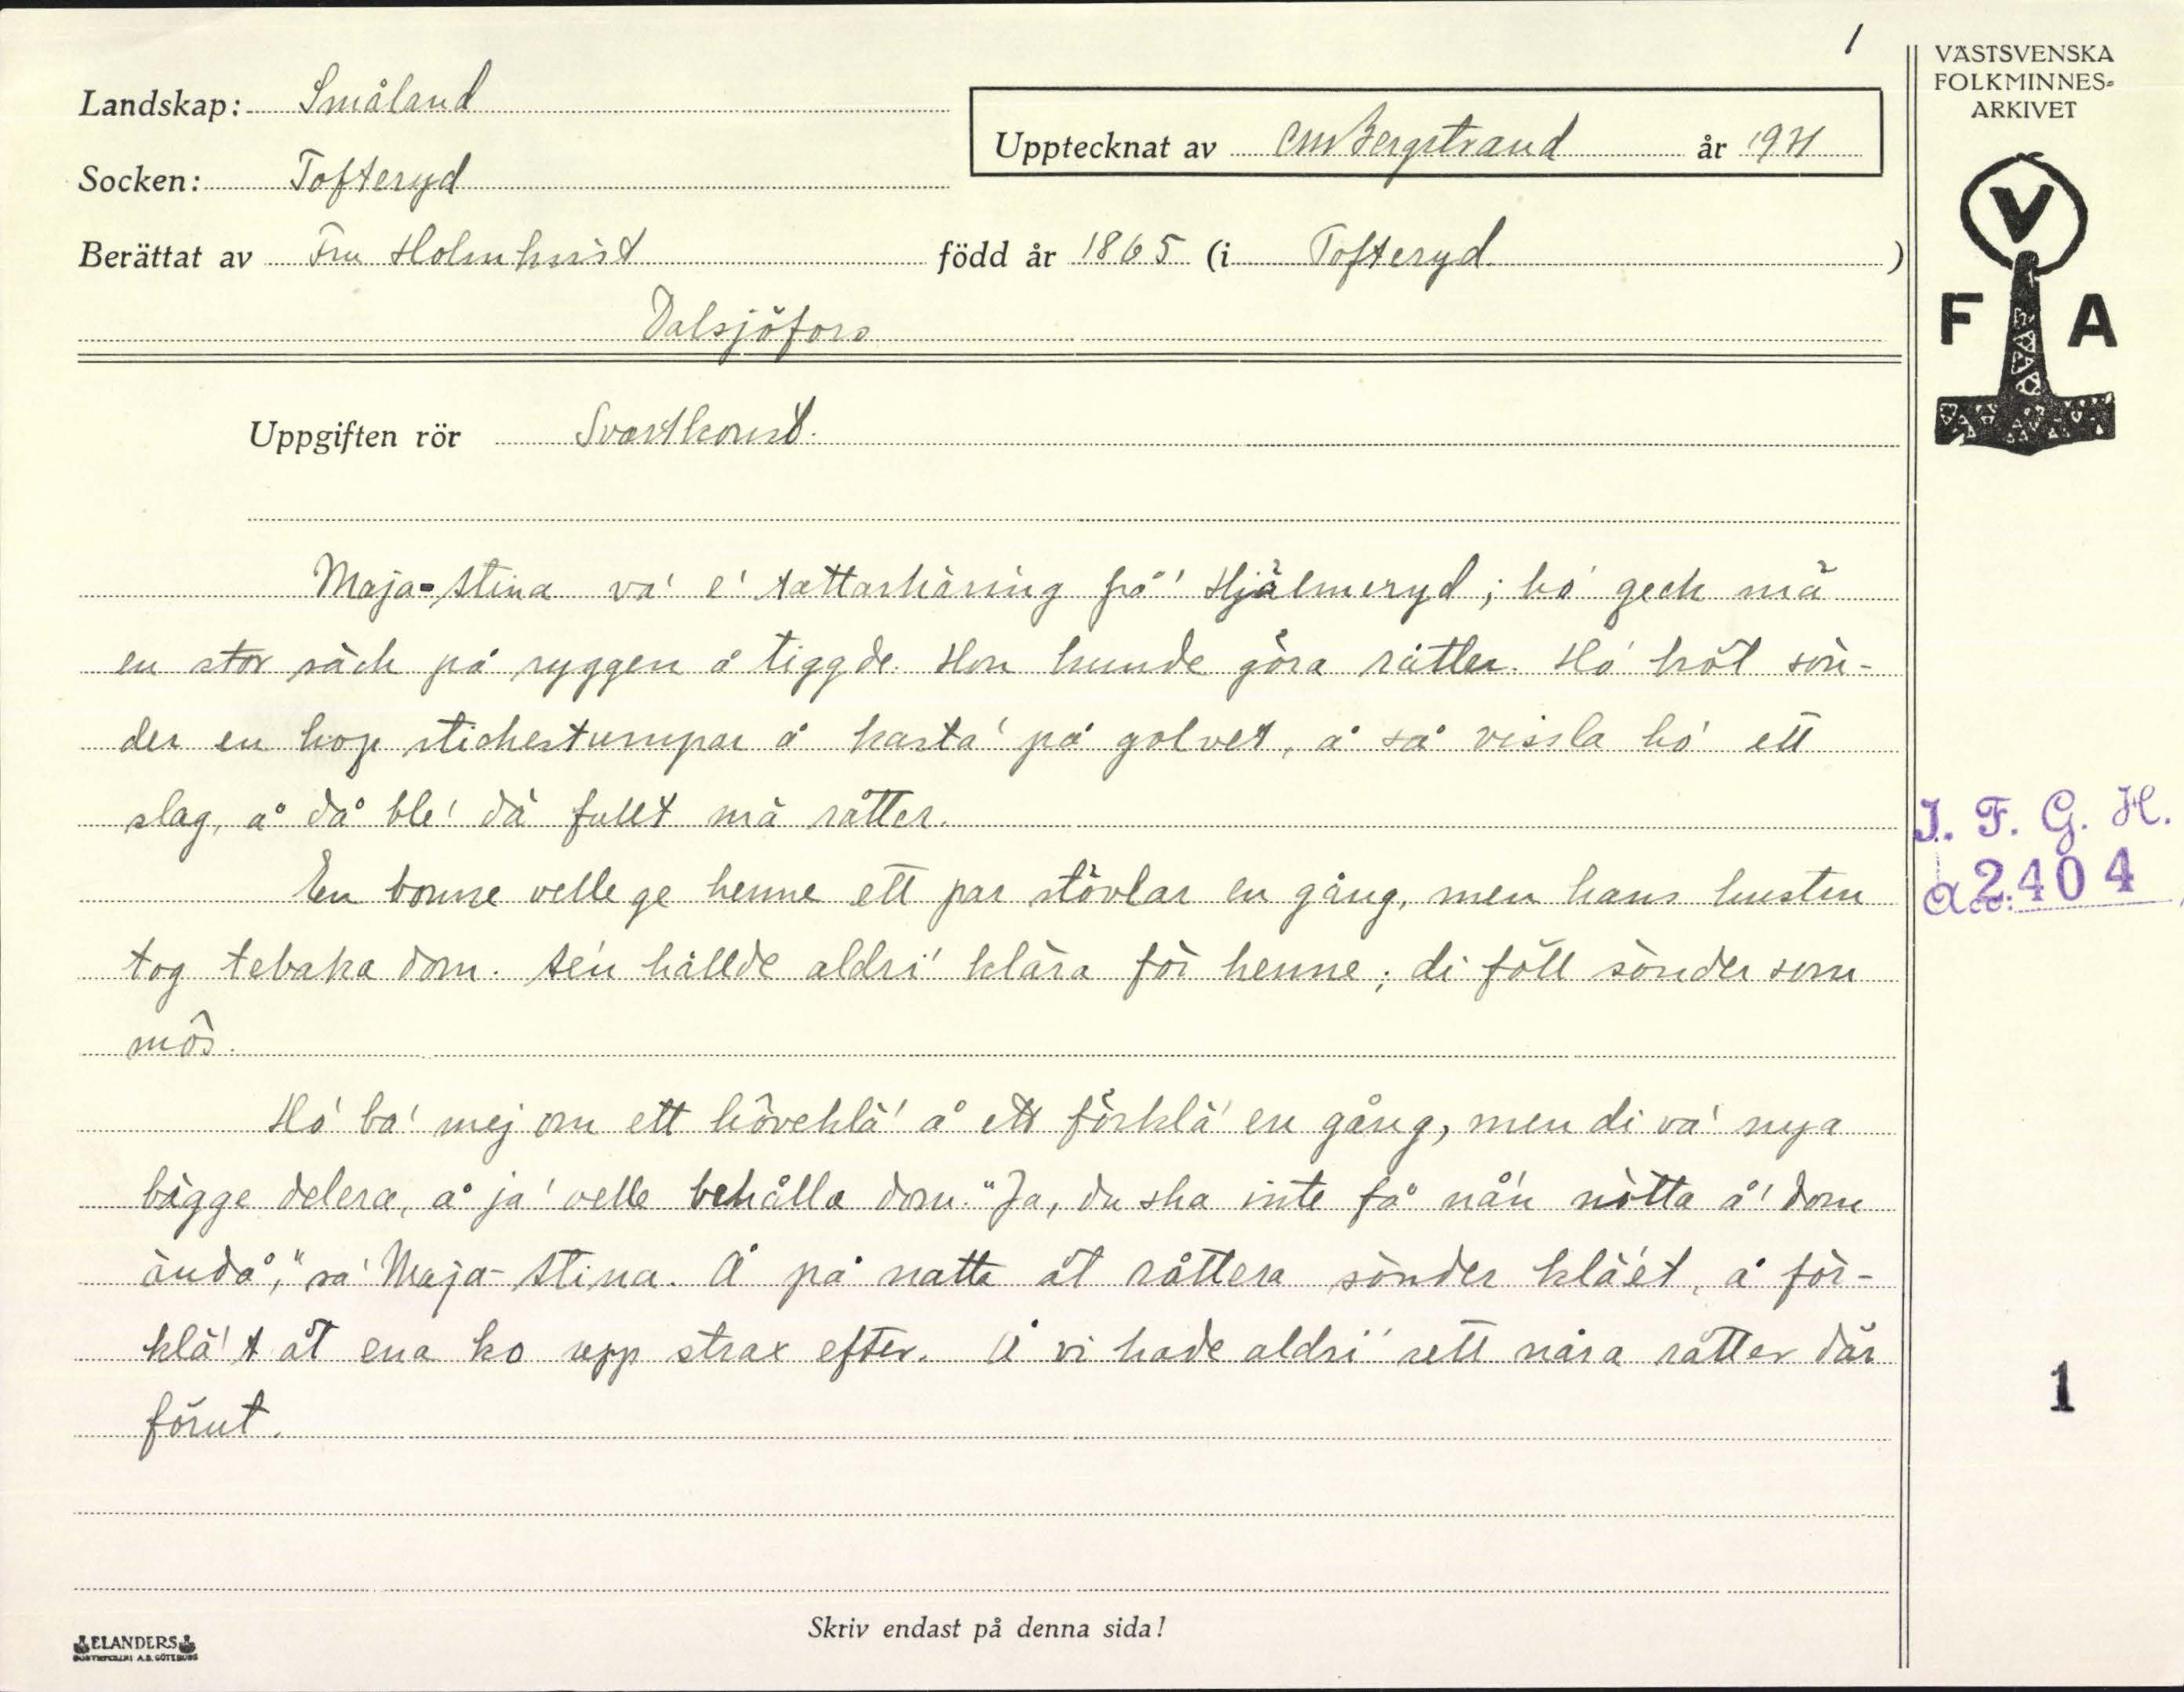 1
VÄSTSVENSKA
FOLKMINNES-
ARKIVET
Landskap: Småland
Upptecknat av CMBergstrand år 1931
Socken: Tofteryd
Berättat av Fru Holmkvist född år 1865 (i Tofteryd)
Dalsjöfors
V
F A
Uppgiften rör Svartkonst.
Maja-Stina va' e' tattarkäring frå' Hjälmeryd; ho' geck mä
en stor säck på ryggen å tiggde. Hon kunde göra råtter. Ho' bröt sön-
der en hop stickestumpar å kasta' på golvet, å så vissla ho' ett
slag, å då ble' dä fullt mä råtter.
En bonne velle ge henne ett par stövlar en gång, men hans hustru
tog tebaka dom. Se'n hållde aldri' klära för henne; di föll sönder som
mös.
Ho' ba' mej om ett hôveklä' å ett förklä' en gång, men di va' nya
bägge delera, å ja' velle behålla dom. "Ja, du ska inte få nå'n nötta å' dom
ändå," sa' Maja-Stina. Å på natta åt råttera sönder klä'et, å för-
klä't åt ena ko upp strax efter. Å vi hade aldri' sett nåra råtter där
förut.
I. F. G. H.
Acc: 2404
1
Skriv endast på denna sida!
ELANDERS
BOKTRYCKERI A.B. GÖTEBORG